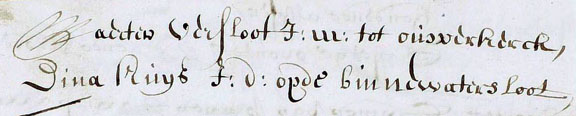 Maerten Versloot J: m: tot ouwerkerck,
Dina Ruijs J: d: opde binnewatersloot,